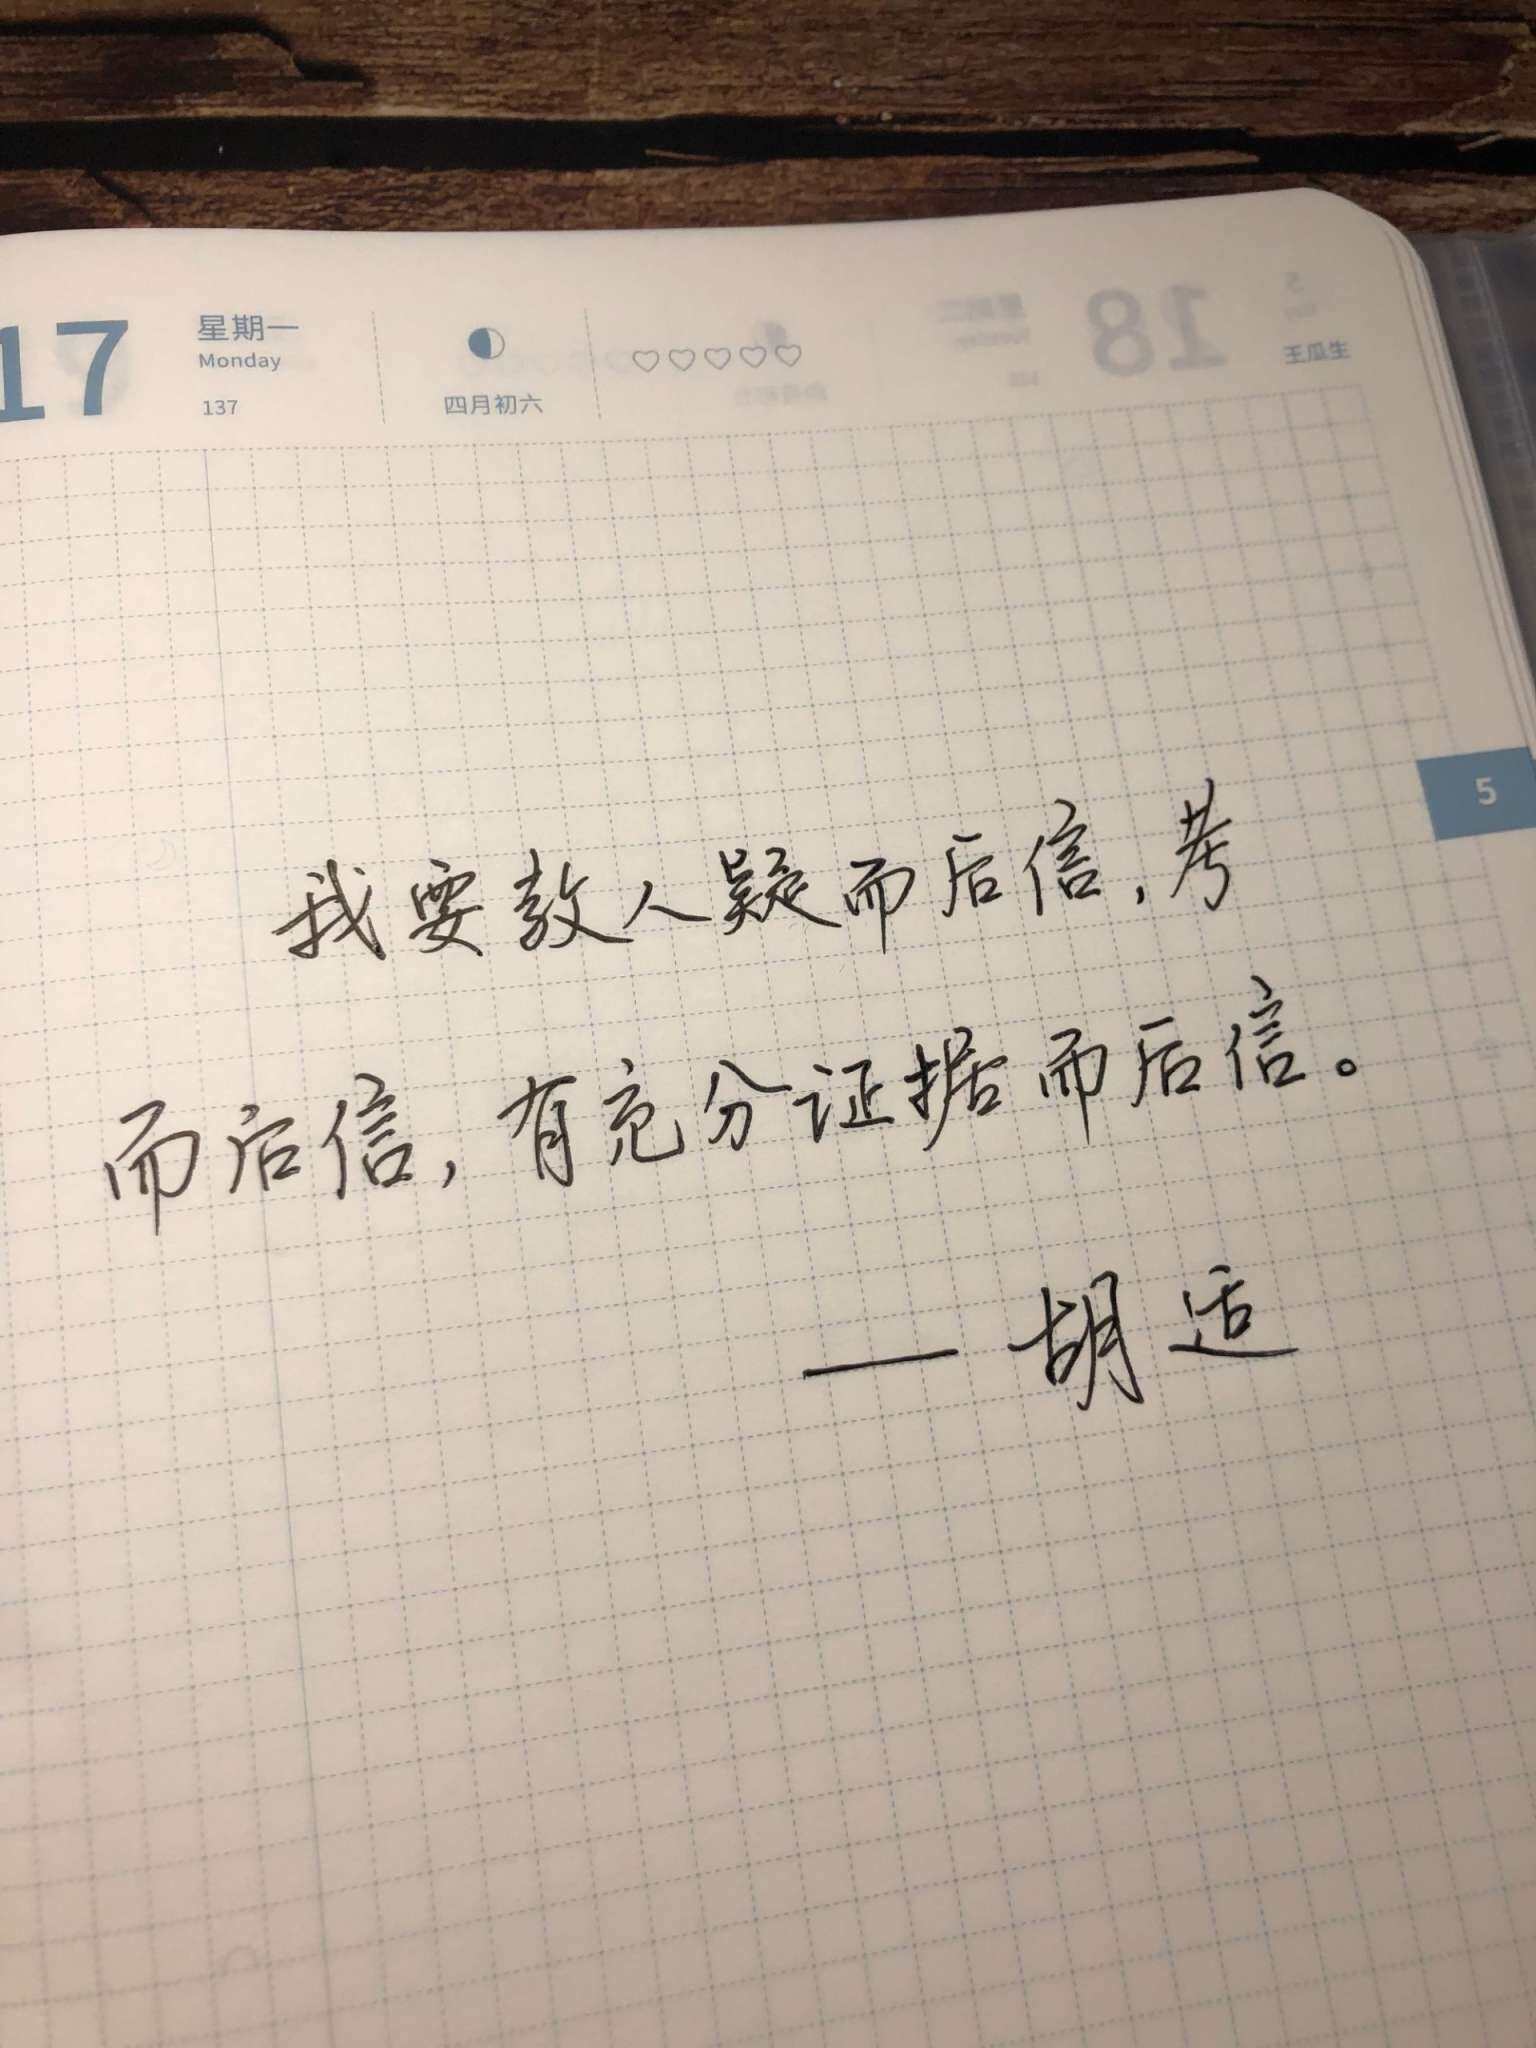 17 星期一
Monday
137
四月初六
王瓜生
5
我要教人疑而后信，考
而后信，有充分证据而后信。
——胡适